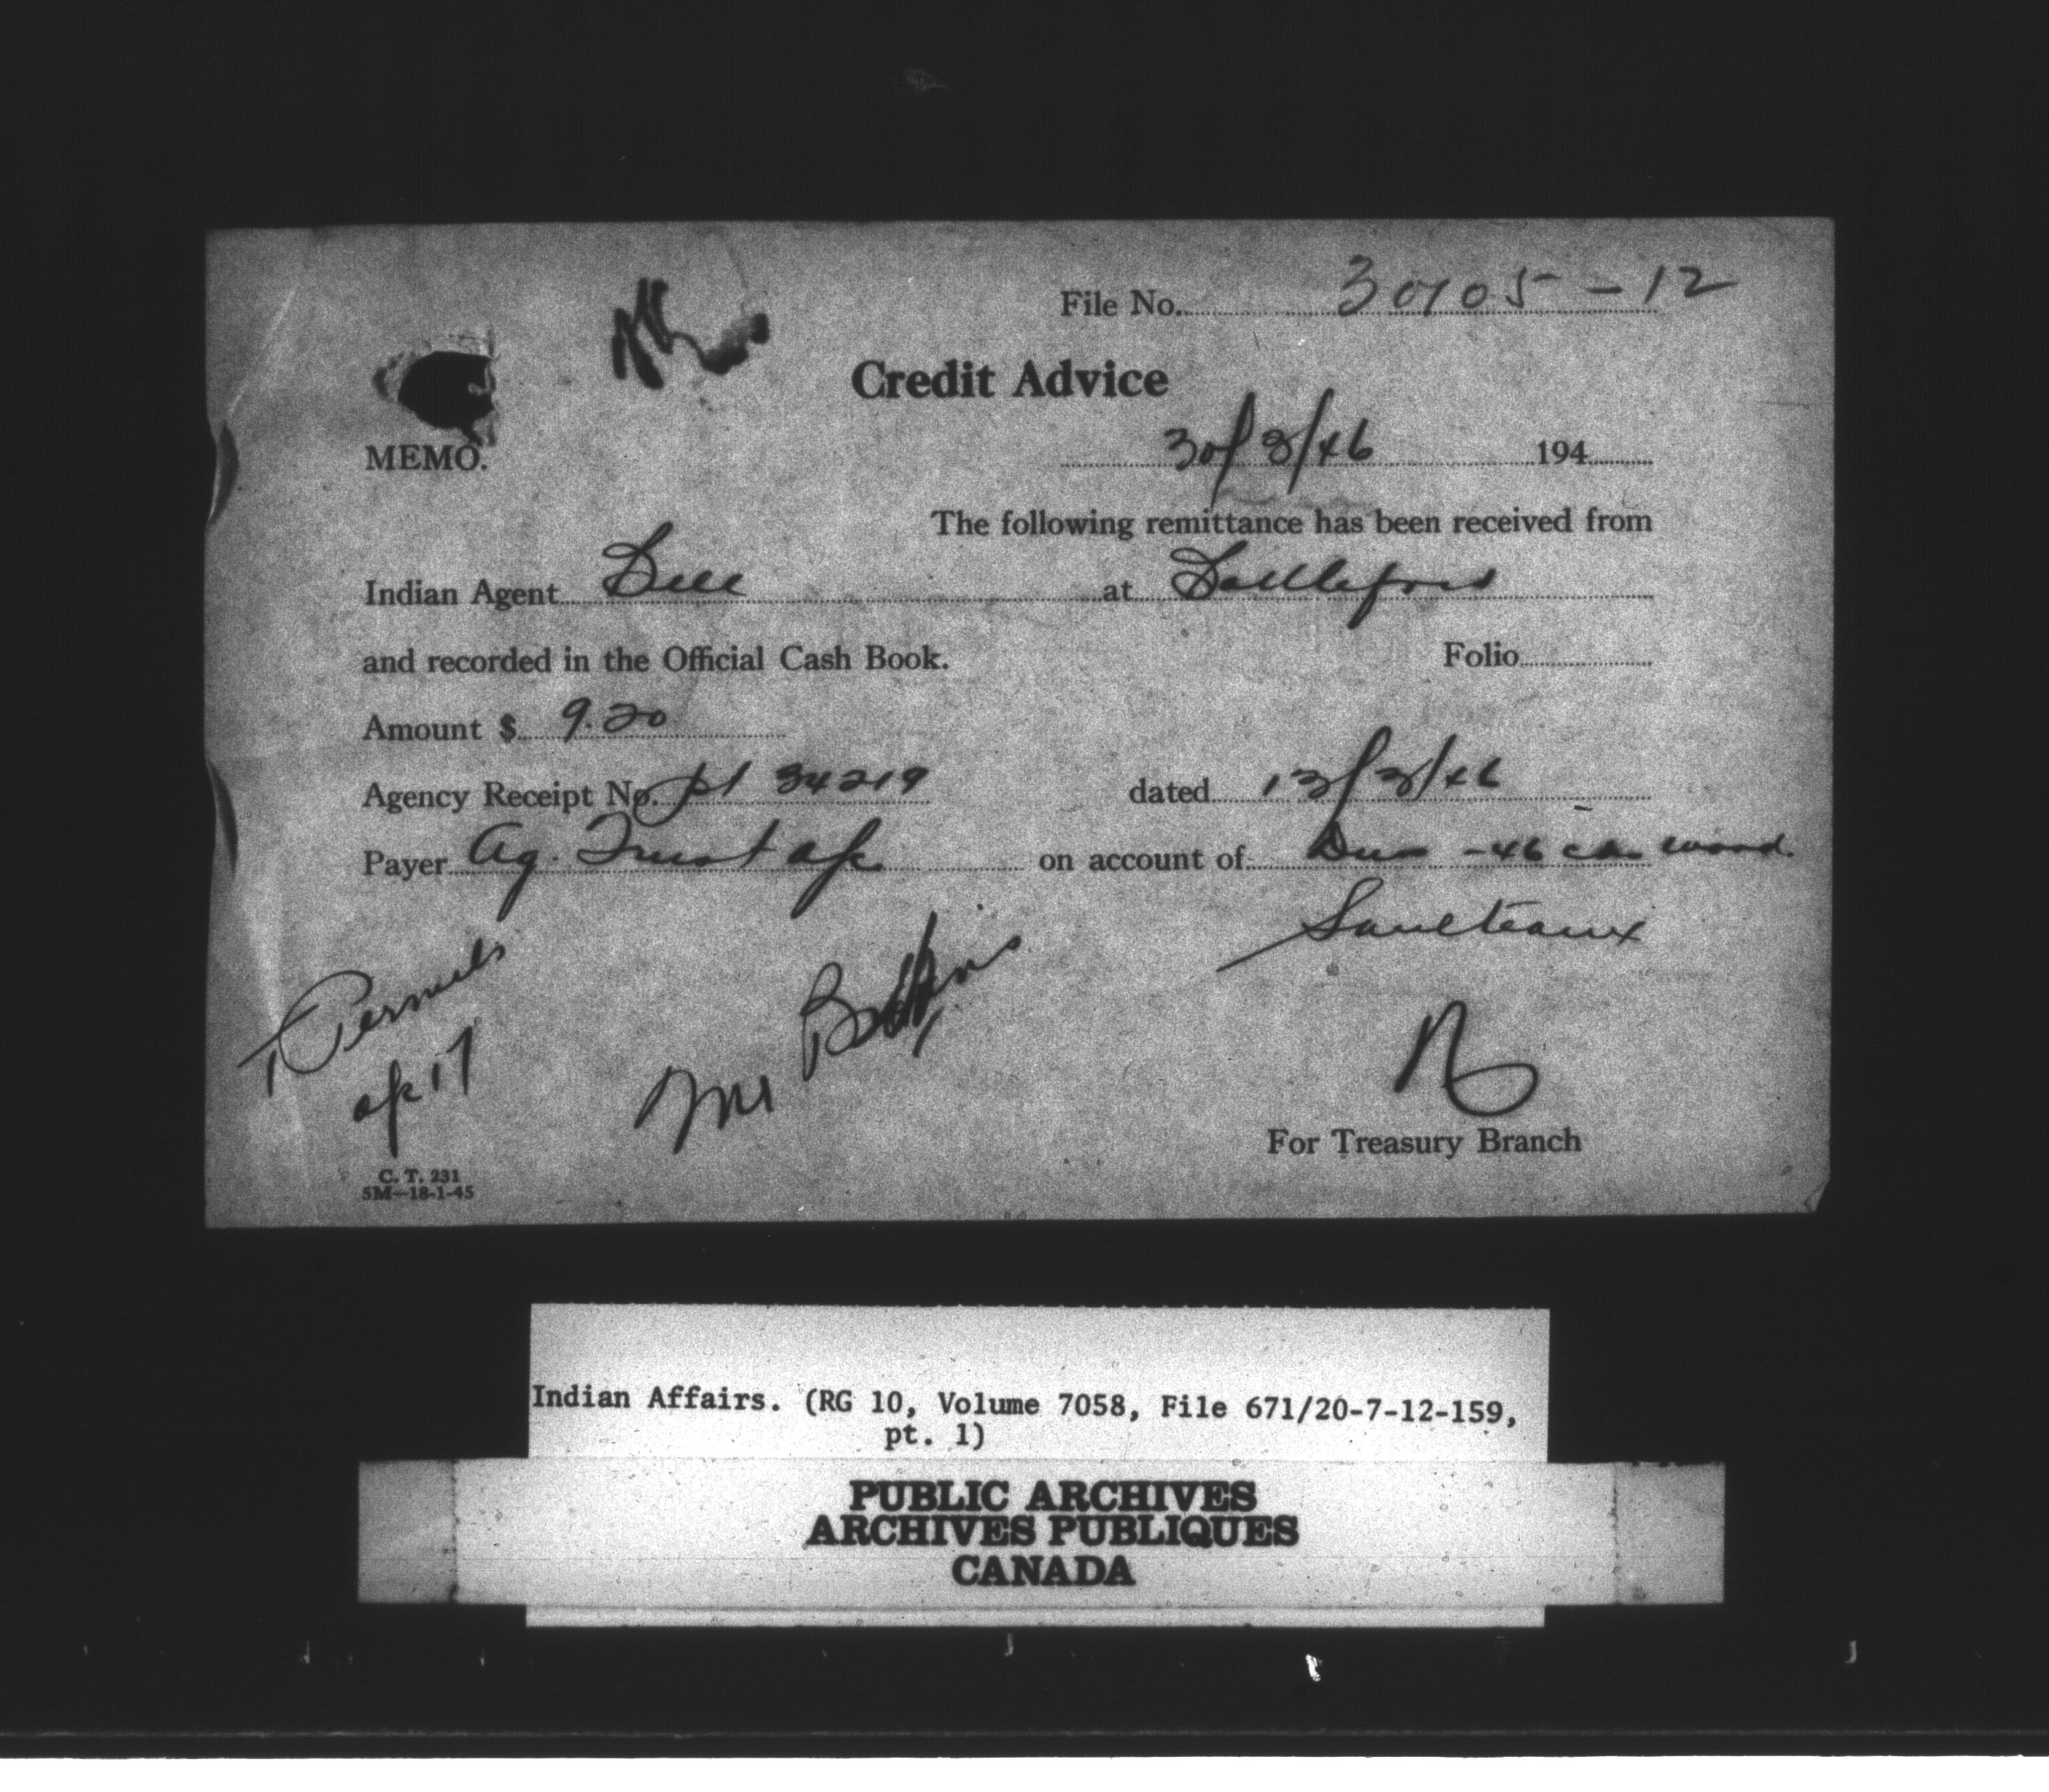 File No. 30105-12
Credit Advice
MEMO.
30/3/46 194
The following remittance has been received from
Indian Agent at Battleford
and recorded in the Official Cash Book. Folio
Amount $ 9.20
Agency Receipt No. 34219 dated 13/3/46
Payer Ag. Trust a/c on account of -46 wood.
Saulteaux
Permits
a/c 17
For Treasury Branch
C. T. 231
5M-18-1-45
Indian Affairs. (RG 10, Volume 7058, File 671/20-7-12-159,
pt. 1)
PUBLIC ARCHIVES
ARCHIVES PUBLIQUES
CANADA